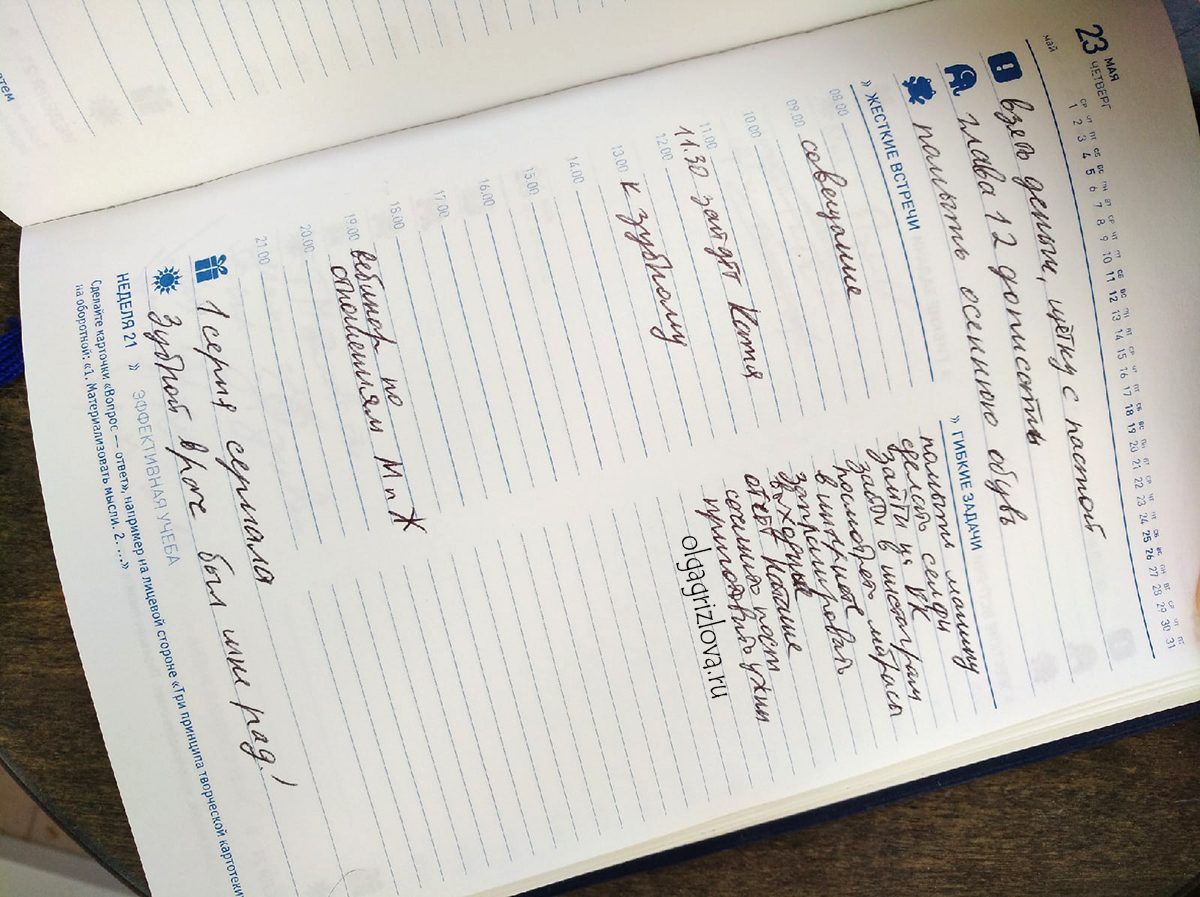 ятем
23 МАЯ
ЧЕТВЕРГ
май
СР ЧТ ПТ СБ ВС ПН ВТ СР ЧТ ПТ СБ ВС ПН ВТ СР ЧТ ПТ СБ ВС ПН ВТ СР ЧТ ПТ СБ ВС ПН ВТ СР ЧТ ПТ
1 2 3 4 5 6 7 8 9 10 11 12 13 14 15 16 17 18 19 20 21 22 23 24 25 26 27 28 29 30 31
взять деньги, щётку с пастой
глава 12 дописать
помыть осеннюю обувь
» ЖЕСТКИЕ ВСТРЕЧИ
08.00
09.00 совещание
10.00
11.00
11.30 зайдёт Катя
12.00
13.00 к зубному
14.00
15.00
16.00
17.00
18.00
19.00 вебинар по
отношениям МиЖ
20.00
21.00
» ГИБКИЕ ЗАДАЧИ
помыть машину
сделать селфи
зайти в ВК
зайти в инстаграм
посмотреть матрасы
в интернете
запланировать
выходные
ответ Наташе
сочинить пост
приготовить ужин
olgagrizlova.ru
1 серия сериала
Зубной врач был мне рад!
НЕДЕЛЯ 21 » ЭФФЕКТИВНАЯ УЧЕБА
Сделайте карточки «Вопрос — ответ», например на лицевой стороне «Три принципа творческой картотеки»
на оборотной: «1. Материализовать мысли. 2. ...»